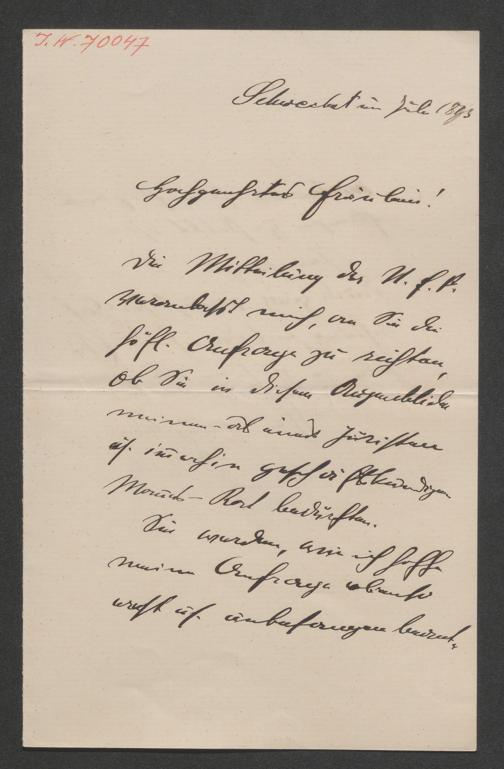 I.N. 70047
Schwechat im Juli 1893
Hochgeehrtes Fräulein!
Die Mittheilung der N. f. P.
veranlaßt mich, an Sie die
höfl. Anfrage zu richten,
ob Sie in diesem Augenblicke
meinen - als eines Juristen
u. imerhin geschäftskundigen
Mannes - Rat bedürften.
Sie werden, wie ich hoffe
meine Anfrage ebenso
u. unbefangen